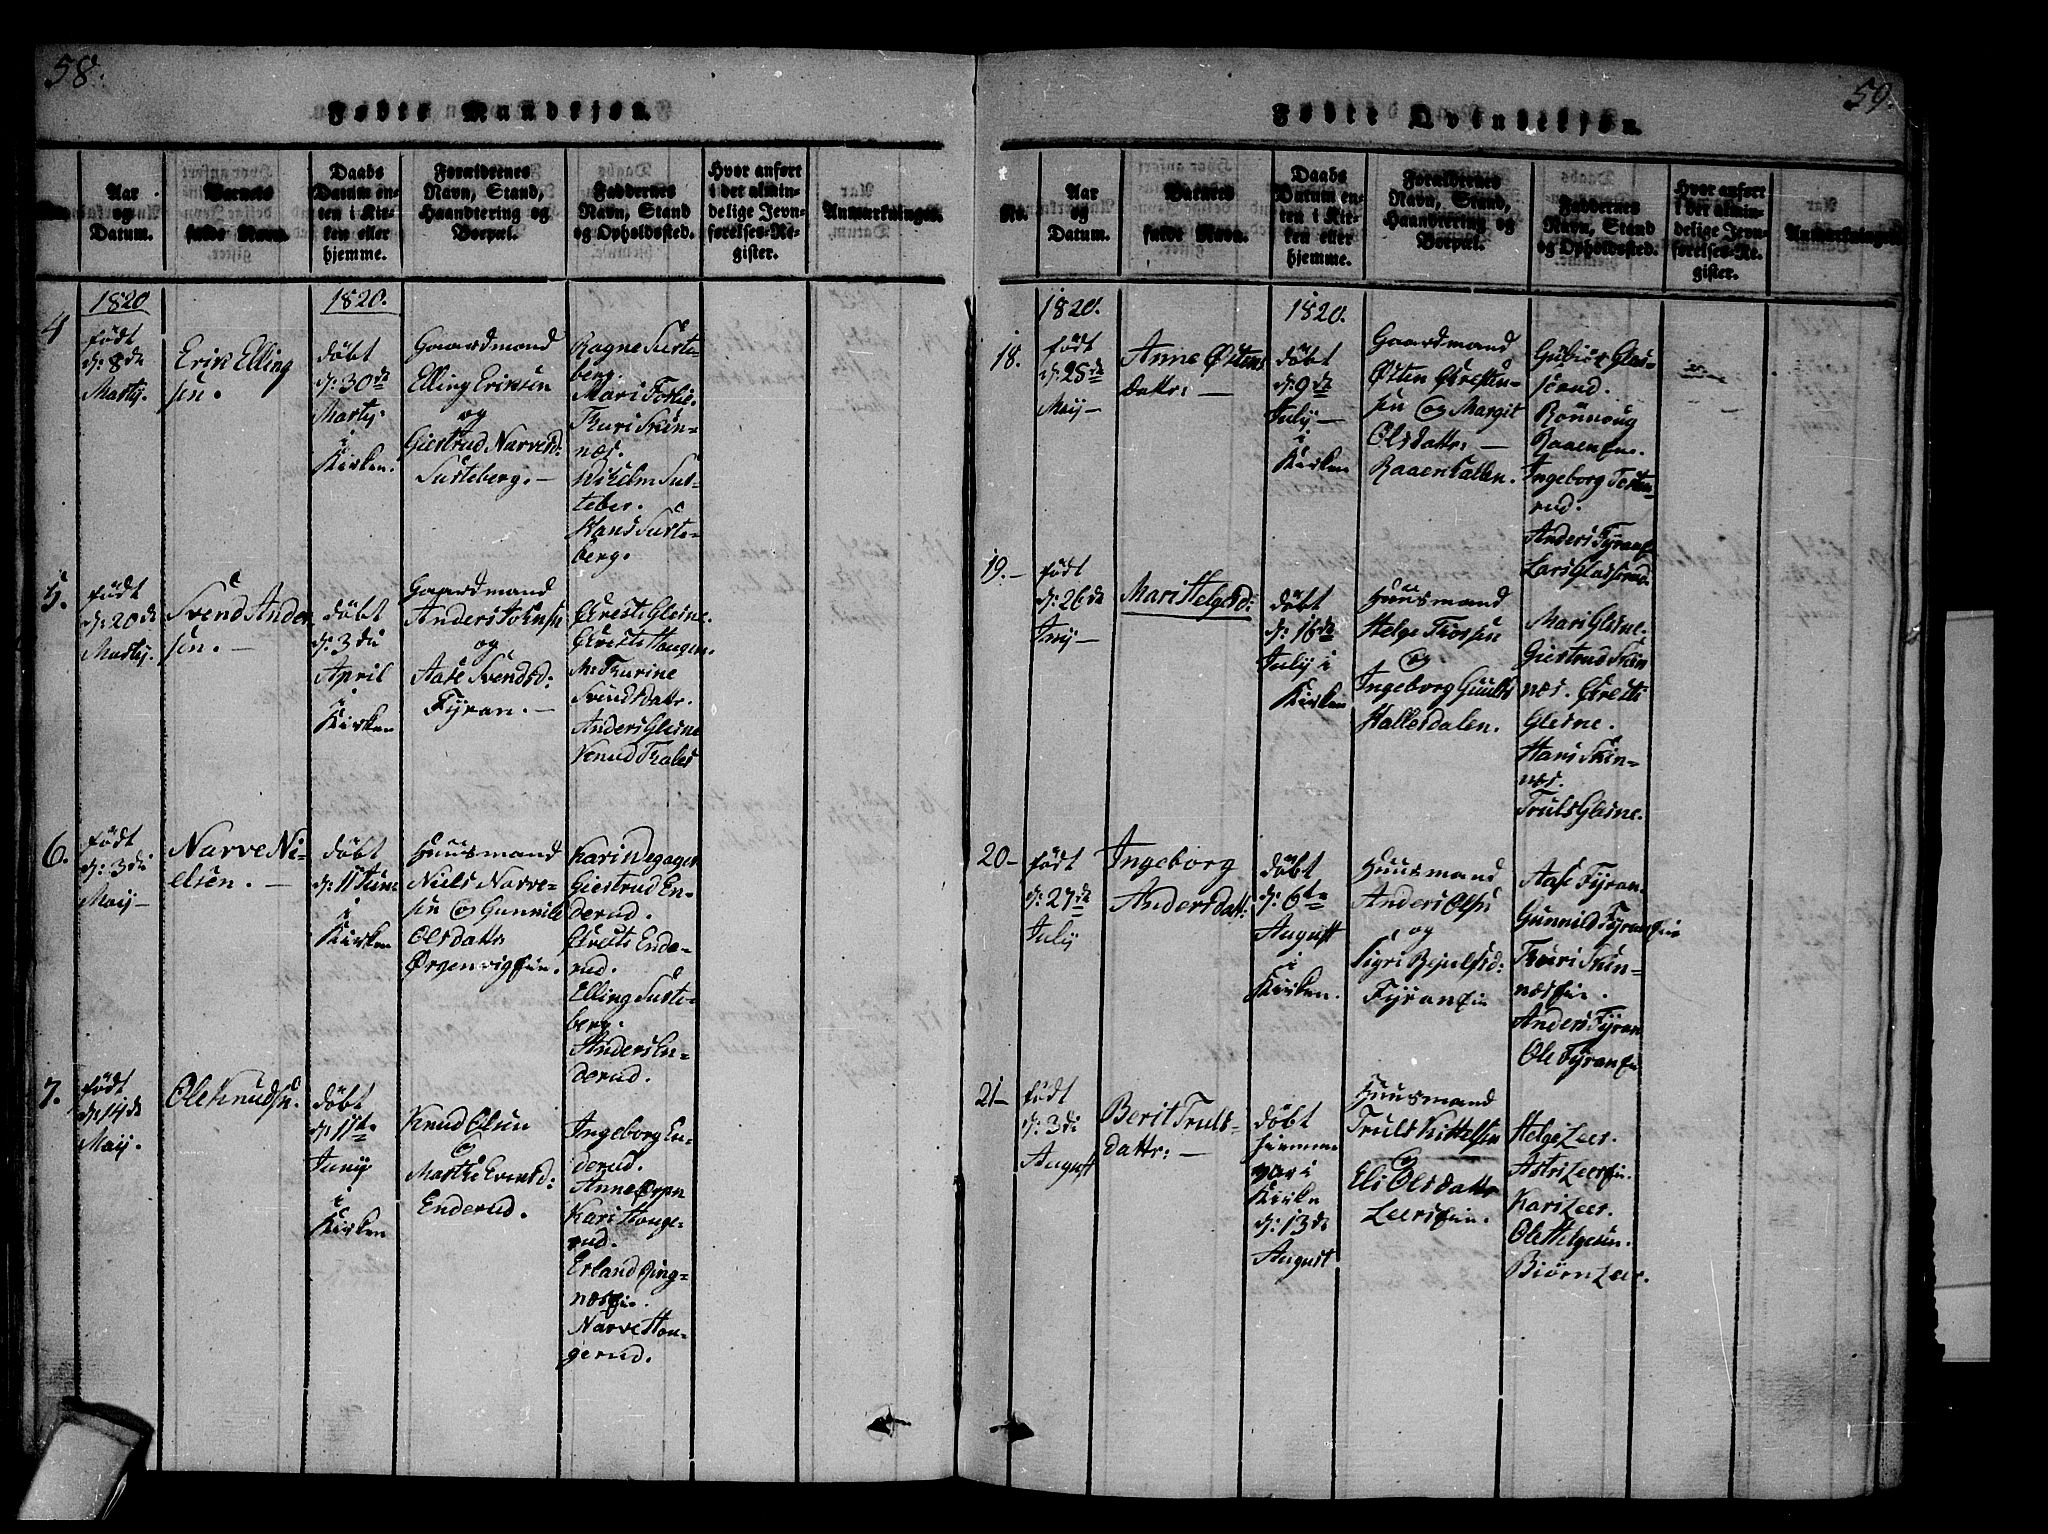 58.
Fødte Mandkjøn.
No.
Aar
og
Datum.
Barnets
fulde Navn.
Daabs
Datum en-
ten i Kir-
ken eller
hjemme.
Forældrenes
Navn, Stand,
Haandtering og
Boepæl.
Faddernes
Navn, Stand
og Opholdssted.
Hvor anført
i det almin-
delige Jevn-
førelses-Re-
gister.
Anmærkninger.
1820
1820.
4
født
d: 8de
Martj.
Erik Elling
sen.
døbt
d: 30de
Martj:
i
Kirken.
Gaardmand
Elling Eriksen
og
Giertrud Narvesd:
Susteberg. –
Ragne Suste-
berg.
Mari
Thuri Skin-
næs.
Wilhelm Sus-
teber.
Hans Suste-
berg.
5.
født
d: 20de
Martj.
Svend Ander
sen. –
døbt
d: 3die
April
i
Kirken
Gaardmand
Anders Johnsen
og
Aase Svendsd:
Fÿran. –
Chresti Gleine.
Chresti Haugen.
M: Thurine
Svendsdattr.
Anders Gleine
Knud Trales
6.
født
d: 3die
Maij –
Narve Ni-
elsen. –
døbt
d: 11 Juni
i
Kirken
Huusmand
Niels Narve-
sen og Gunnild
Olsdattr
Ørgenvig eie.
Kari Degager
Giertrud En-
derud.
Chresti Ende-
rud.
Elling Suste-
berg.
Anders En-
derud.
7.
født
d: 14de
Maij.
Ole Knudsen.
døbt
d: 11te
Junij
i
Kirken
Knud Olsen
og
Marthe Evensd:
Enderud.
Ingeborg En-
derud.
Anne Ørgen
Kari Hauge-
rud.
Erland Ring-
næs eie.
Narve Hau-
gerud.
59.
Fødte Qvindekjøn.
No.
Aar
og
Datum.
Barnets
fulde Navn.
Daabs
Datum en-
ten i Kir-
ken eller
hjemme.
Forældrenes
Navn, Stand,
Haandtering og
Boepæl.
Faddernes
Navn, Stand
og Opholdssted.
Hvor anført
i det almin-
delige Jevn-
førelses-Re-
gister.
Anmærkninger.
1820.
1820.
18.
født
d: 25de
Maij –
Anne Østens
dattr: –
døbt
d: 9de
Julij –
i
Kirken
Gaardmand
Østen Chresten-
sen og Margit
Olsdattr: –
Raaen
Rønnoug
Raaen eie.
Ingeborg
rud.
Anders Fÿran
Lars Glasrud.
19. –
født
d: 26de
Junij –
Mari Helgesd:
døbt
d: 16de
Julij i
Kirken
Huusmand
Helge Thorsen
og
Ingeborg Guulbr
Hallesdalen.
Mari Gleine.
Giertrud Skin
næs. Chresti
Gleine.
Hans Skin-
næs.
Truls Gleine.
20 –
født
d: 27de
Julij
Ingeborg
Andersdattr:
døbt
d: 6te
August
i
Kirken.
Huusmand
Anders Olsen
og
Sigri
Fÿran eie
Aase Fÿran.
Gunnild Fÿran eie
Thuri Skin-
næs eie.
Anders Fÿran
Ole Fÿran eie
21 –
født
d: 3die
August
Berit Truls-
dattr: –
døbt
hiemme
var i
Kirke
d: 13de
August
Huusmand
Truls Kittelsen
og
Eli Olsdattr
Leers eie.
Helge Leer.
Astri Leer eie.
Kari Leer.
Ole Helgesen.
Biørn Leer.